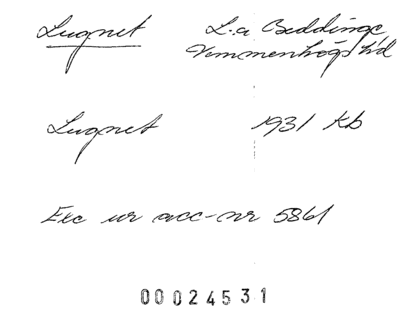 Lugnet L:a Beddinge
Vemmenhögs hd
Lugnet 1931 kb
Exc ur acc-nr 5861
00024531